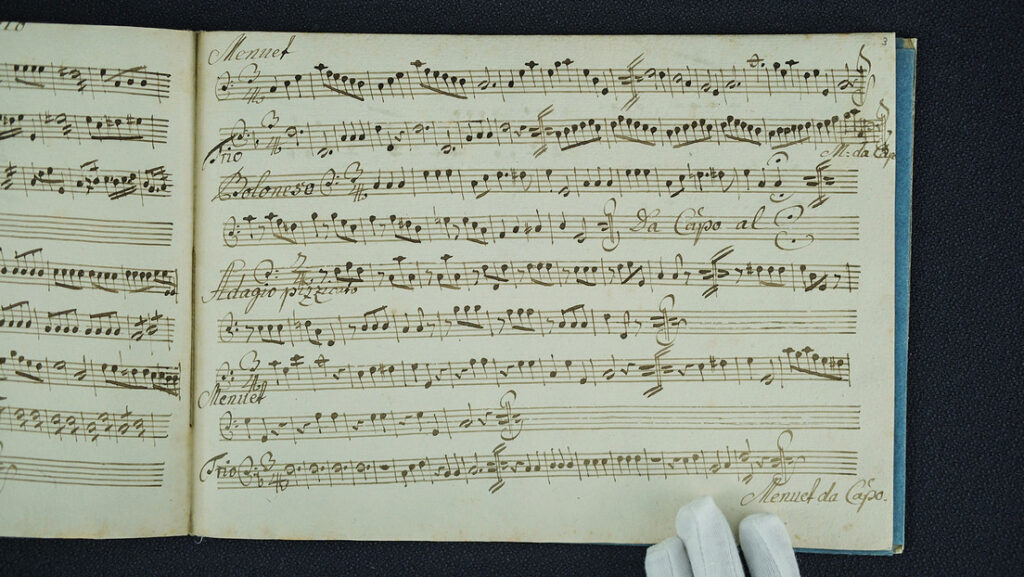 3
Menuet
Trio
M: da Cap
Poloneso
Da Capo al
Adagio pizzicato
Menuet
Trio
Menuet da Capo.